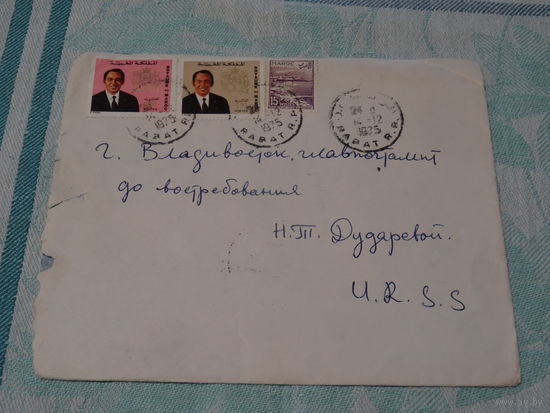 المملكة المغربية
المملكة المغربية
MAROC
15
1975
RABAT R.P.
12
1975
RABAT R.P.
12
1975
RABAT R.P.
г. Владивосток, главпочтамт
до востребования
Н.Т. Дударевой.
U.R.S.S